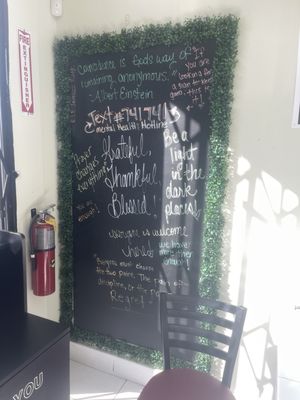 FIRE
EXTINGUISHER
Coincidence is God's way of
remaining anonymous."
-Albert Einstein
If
you are
looking for
a sign
this is
it!
Text #741741
(mental Health Hotline)
Prayer
changes
everything
Grateful,
Thankful
Blessed!
Be a
light
in the
dark
places!
You are
enough!
everyone is welcome
here
we have
each other
"Everyone must choose
the two pains. The pain of
discipline, or the pain
Regret
YOU